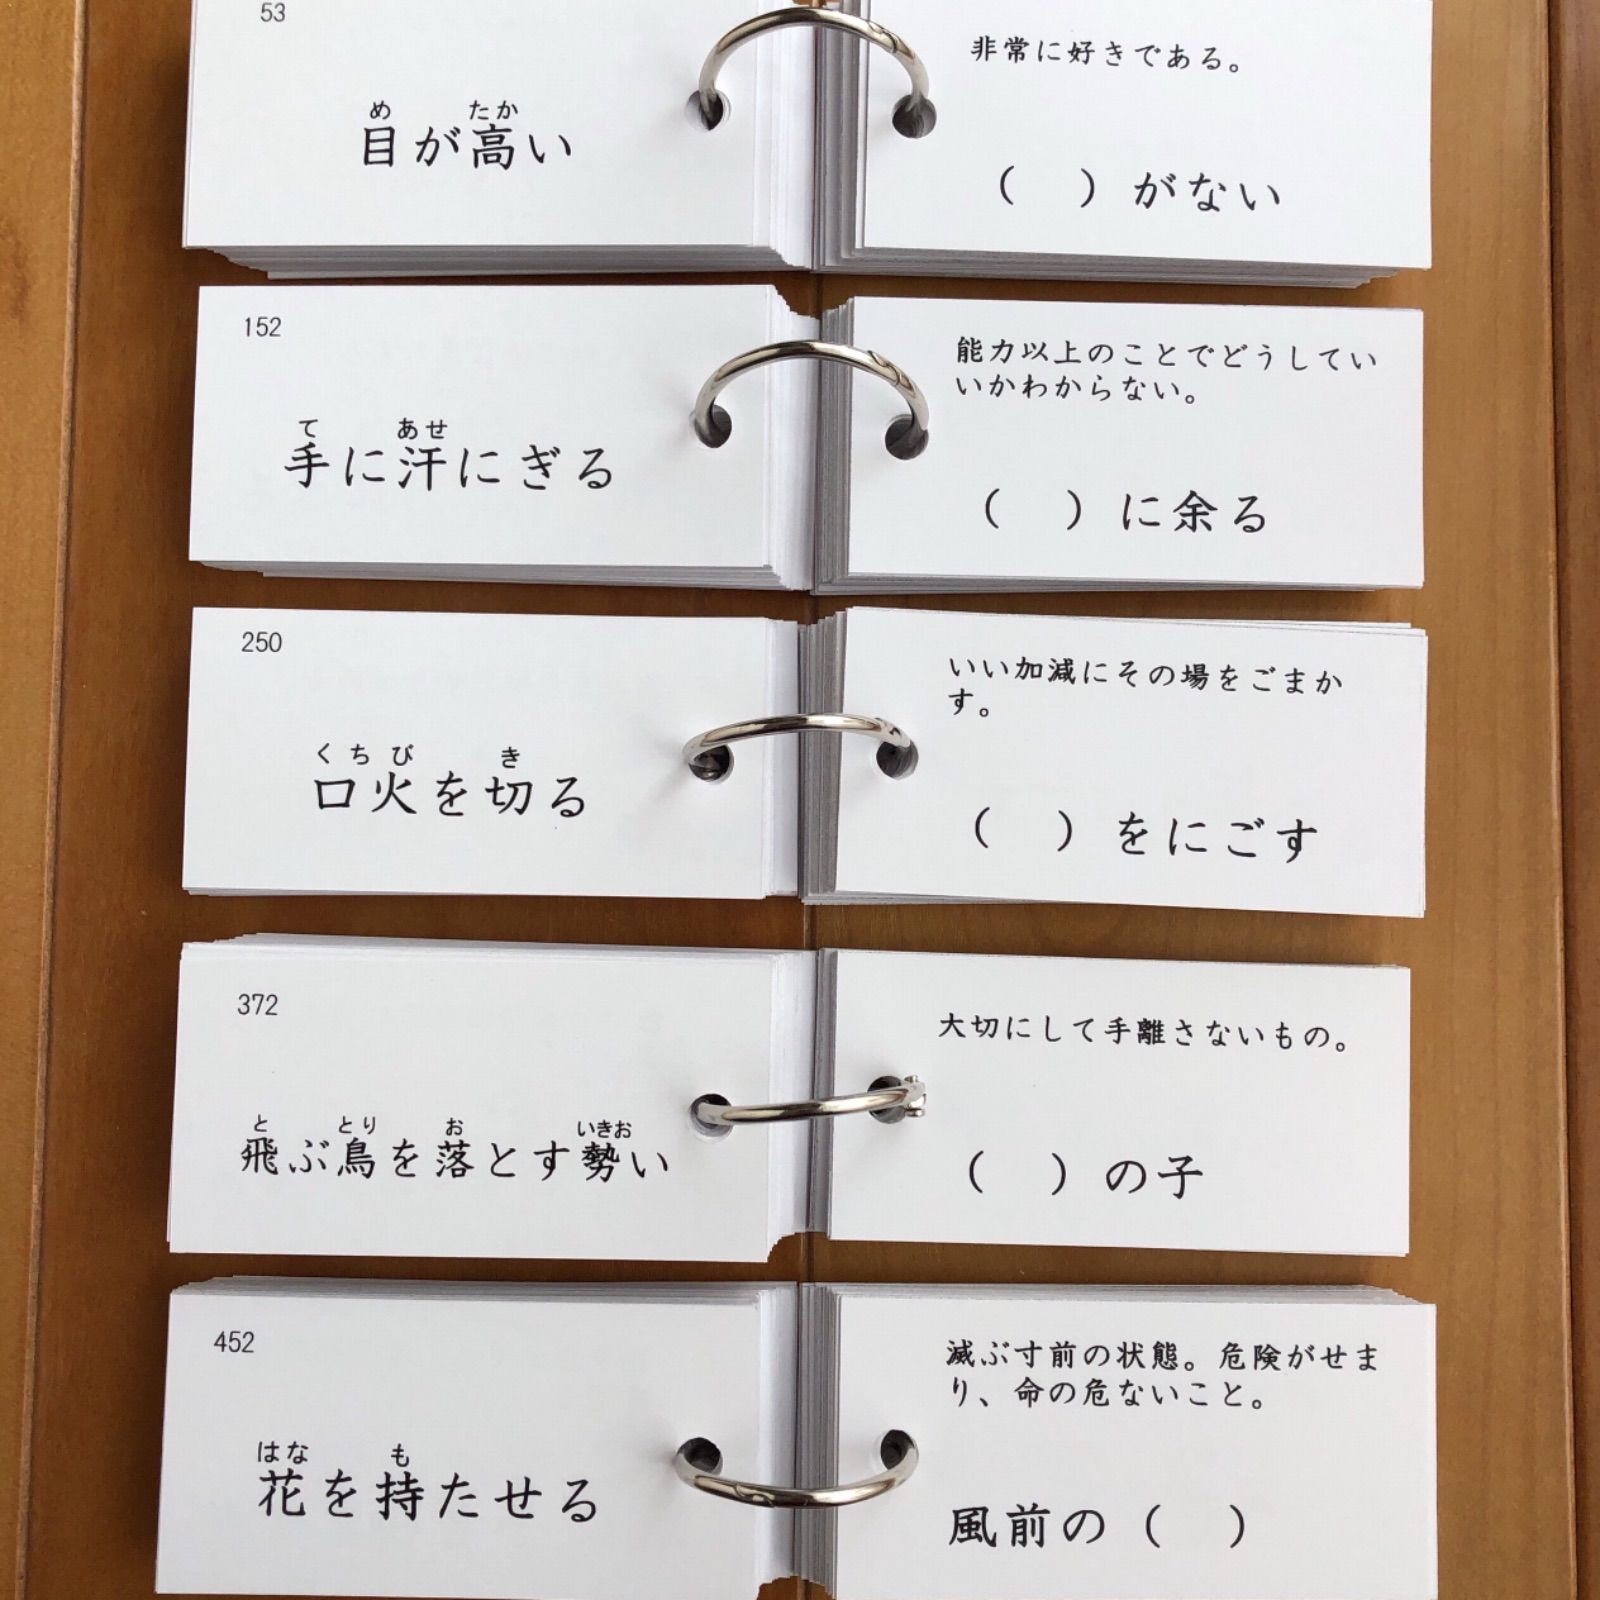 53
め たか
目が高い
非常に好きである。
（　）がない
152
て あせ
手に汗にぎる
能力以上のことでどうしてい
いかわからない。
（　）に余る
250
くちび き
口火を切る
いい加減にその場をごまか
す。
（　）をにごす
372
と とり お いきお
飛ぶ鳥を落とす勢い
大切にして手離さないもの。
（　）の子
452
はな も
花を持たせる
滅ぶ寸前の状態。危険がせま
り、命の危ないこと。
風前の（　）